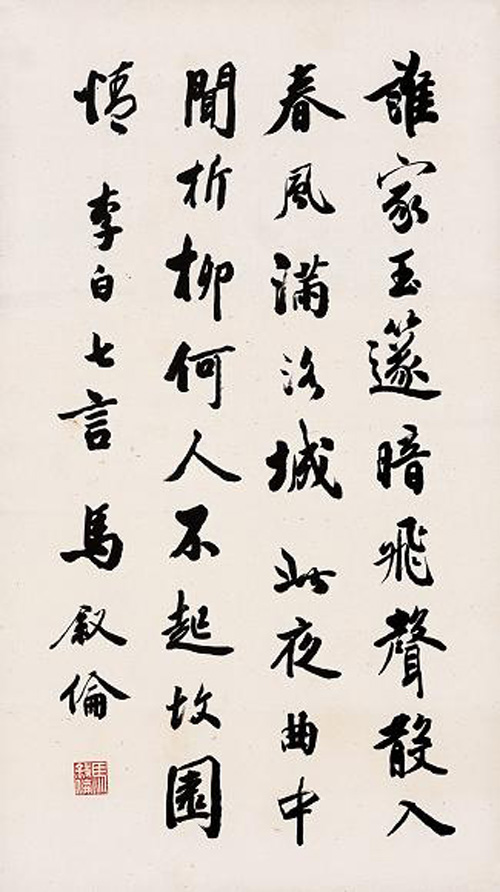 誰家玉篴暗飛聲散入
春風滿洛城此夜曲中
聞折柳何人不起故園
情 李白七言 馬叙倫